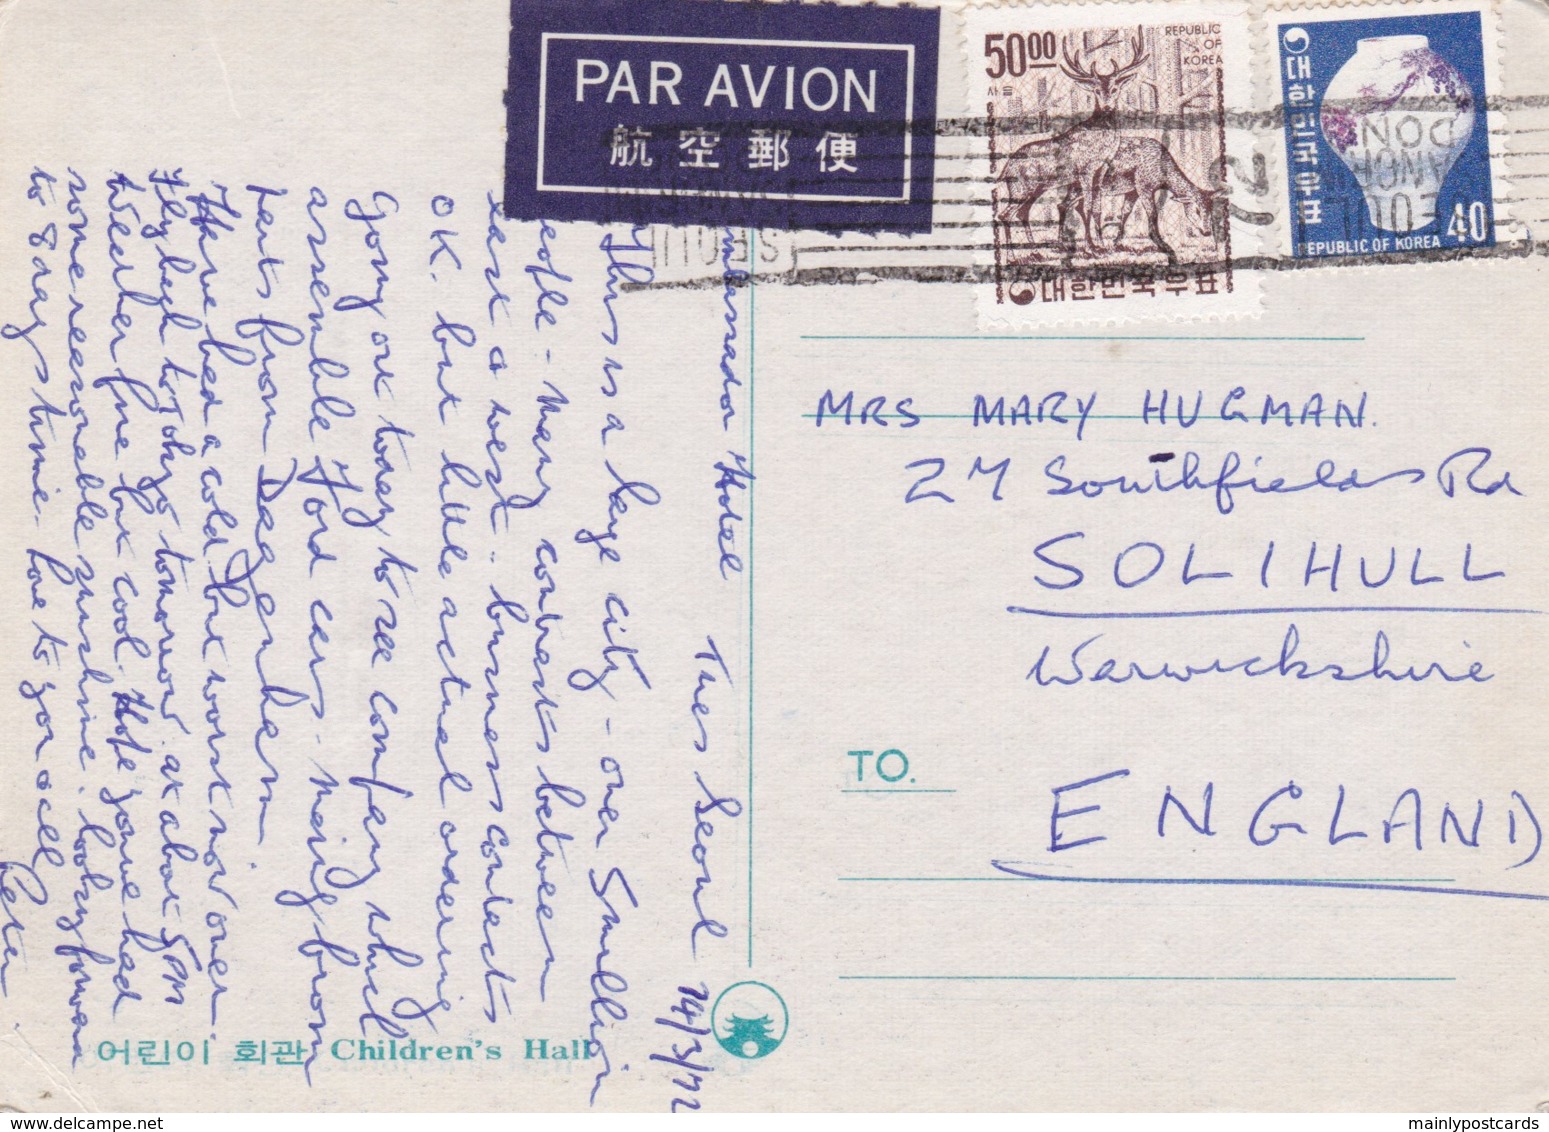 PAR AVION
航空郵便
50.00
REPUBLIC
OF
KOREA
사슴
대한민국우표
대한민국우표
REPUBLIC OF KOREA 40
SEOUL
72
SEOUL
Ambassador Hotel Tues Seoul 14/3/72
This is a large city - over 5 million
people - many contrasts between
east & west. business contacts
OK. but little actual ordering
Going out today to see company which
assemble Ford cars - mainly from
parts from Dagenham.
Have had a cold but worst now over.
Fly back to Tokyo tomorrow at about 5 pm
Weather fine but cool. Hope you've had
some reasonable sunshine. looking forward
to 8 days time. love to you all
Peter
MRS MARY HUGMAN.
27 Southfields Rd
SOLIHULL
Warwickshire
TO.
ENGLAND
어린이 회관 Children's Hall
mainlypostcards